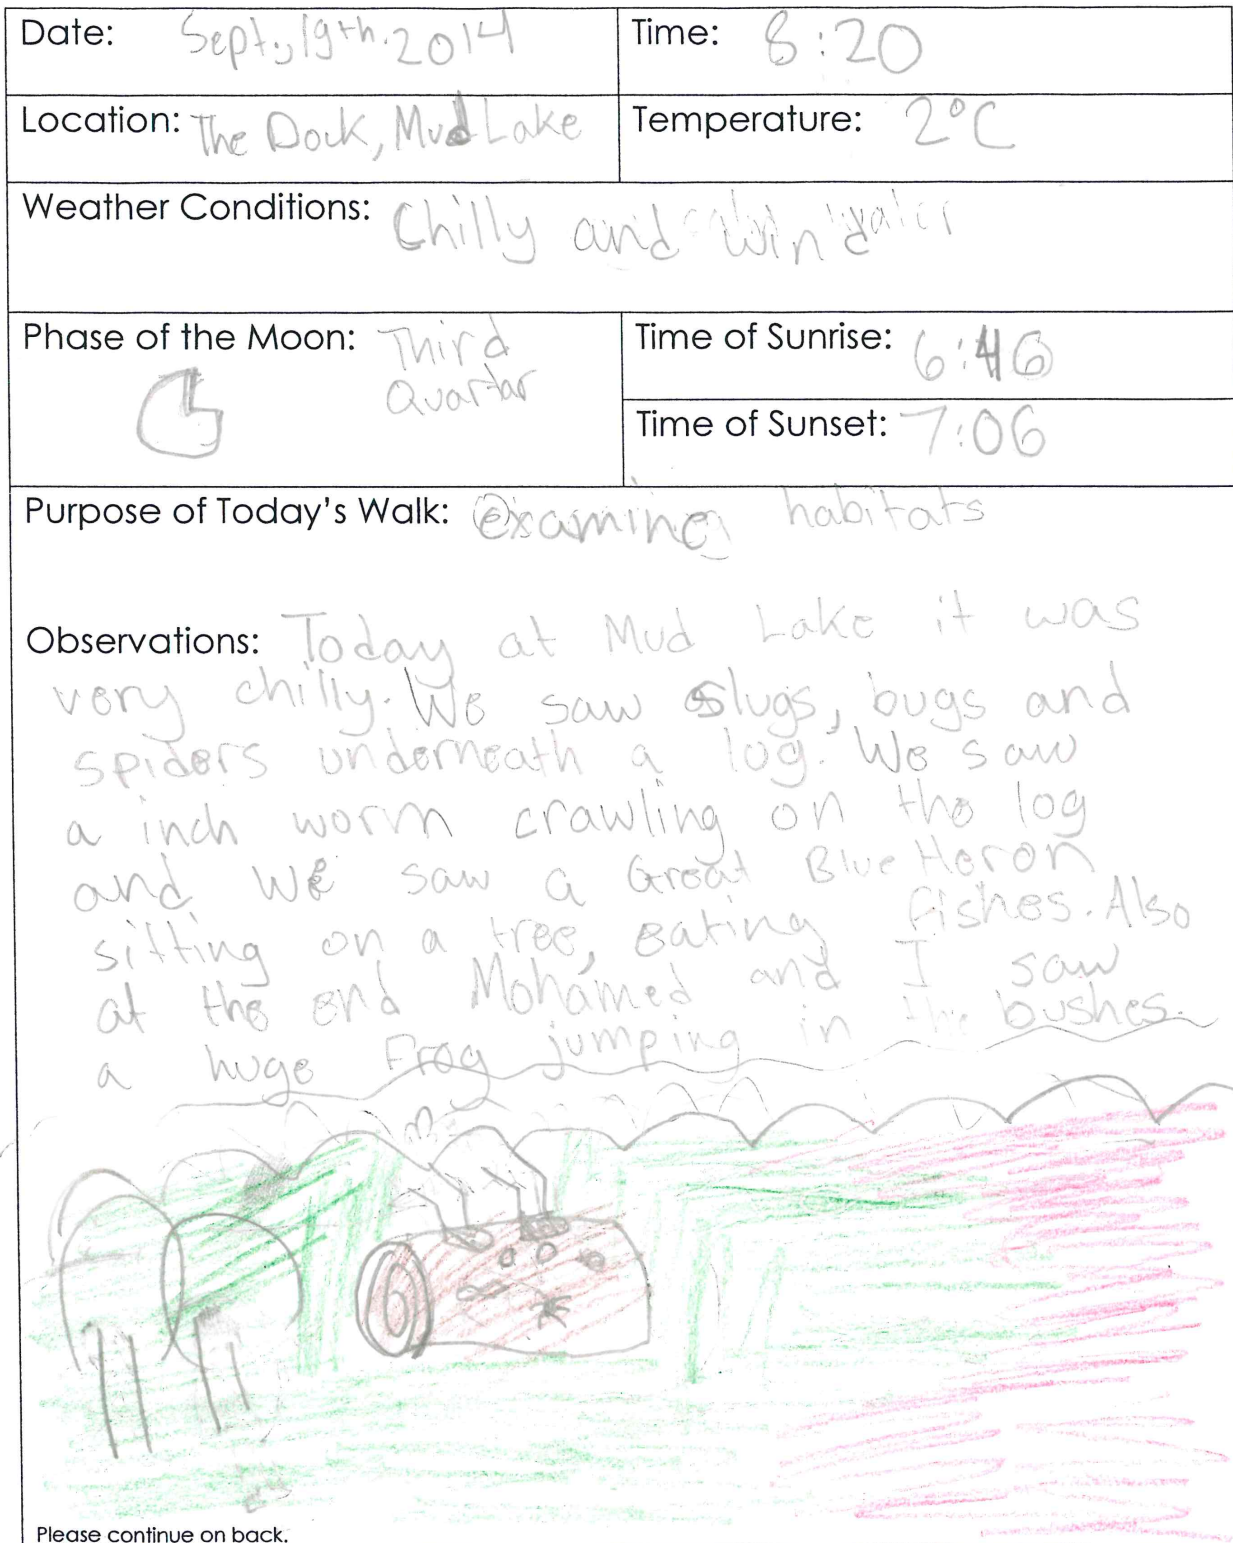 Date: Sept, 19th. 2014
Time: 8:20
Location: The Dock, Mud Lake
Temperature: 2°C
Weather Conditions: Chilly and
Phase of the Moon: Third
Quartar
Time of Sunrise: 6:46
Time of Sunset: 7:06
Purpose of Today's Walk: examining habitats
Observations: Today at Mud Lake it was
very chilly. We saw slugs, bugs and
spiders underneath a log. We saw
a inch worm crawling on the log
and we saw a Great Blue Heron
sitting on a tree, eating fishes. Also
at the end Mohamed and I saw
a huge Frog jumping in the bushes.
Please continue on back.